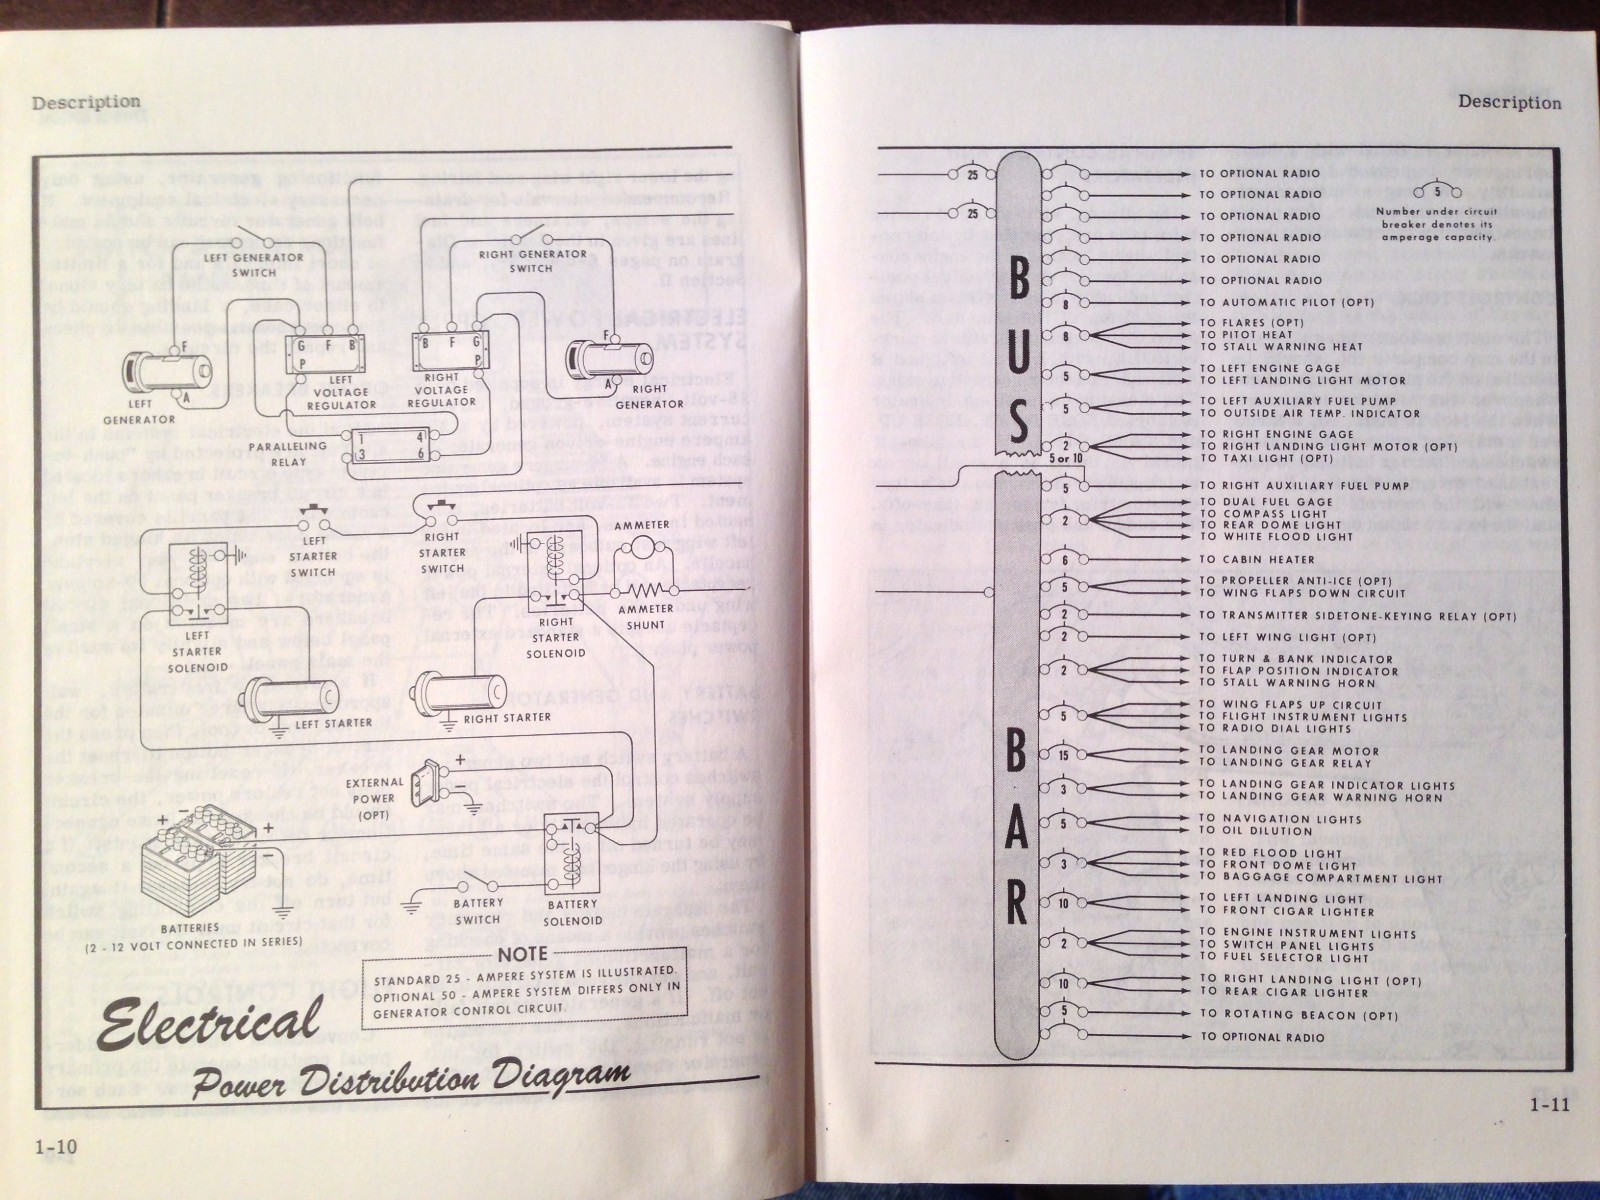 Description
LEFT GENERATOR
SWITCH
RIGHT GENERATOR
SWITCH
F
A
LEFT
GENERATOR
G F B
P
LEFT
VOLTAGE
REGULATOR
B F G
P
RIGHT
VOLTAGE
REGULATOR
F
A
RIGHT
GENERATOR
PARALLELING
RELAY
1 4
3 6
LEFT
STARTER
SWITCH
RIGHT
STARTER
SWITCH
AMMETER
AMMETER
SHUNT
LEFT
STARTER
SOLENOID
RIGHT
STARTER
SOLENOID
LEFT STARTER
RIGHT STARTER
EXTERNAL
POWER
(OPT)
+
-
+ -
+
-
BATTERY
SWITCH
BATTERY
SOLENOID
BATTERIES
(2 - 12 VOLT CONNECTED IN SERIES)
NOTE
STANDARD 25 - AMPERE SYSTEM IS ILLUSTRATED.
OPTIONAL 50 - AMPERE SYSTEM DIFFERS ONLY IN
GENERATOR CONTROL CIRCUIT.
Electrical
Power Distribution Diagram
1-10
Description
25
25
BUS
BAR
5
Number under circuit
breaker denotes its
amperage capacity.
TO OPTIONAL RADIO
TO OPTIONAL RADIO
TO OPTIONAL RADIO
TO OPTIONAL RADIO
TO OPTIONAL RADIO
TO OPTIONAL RADIO
8 TO AUTOMATIC PILOT (OPT)
TO FLARES (OPT)
8 TO PITOT HEAT
TO STALL WARNING HEAT
TO LEFT ENGINE GAGE
5 TO LEFT LANDING LIGHT MOTOR
TO LEFT AUXILIARY FUEL PUMP
5 TO OUTSIDE AIR TEMP. INDICATOR
TO RIGHT ENGINE GAGE
2 TO RIGHT LANDING LIGHT MOTOR (OPT)
5 or 10 TO TAXI LIGHT (OPT)
5 TO RIGHT AUXILIARY FUEL PUMP
TO DUAL FUEL GAGE
2 TO COMPASS LIGHT
TO REAR DOME LIGHT
TO WHITE FLOOD LIGHT
6 TO CABIN HEATER
TO PROPELLER ANTI-ICE (OPT)
5 TO WING FLAPS DOWN CIRCUIT
2 TO TRANSMITTER SIDETONE-KEYING RELAY (OPT)
2 TO LEFT WING LIGHT (OPT)
TO TURN & BANK INDICATOR
2 TO FLAP POSITION INDICATOR
TO STALL WARNING HORN
TO WING FLAPS UP CIRCUIT
5 TO FLIGHT INSTRUMENT LIGHTS
TO RADIO DIAL LIGHTS
TO LANDING GEAR MOTOR
15 TO LANDING GEAR RELAY
TO LANDING GEAR INDICATOR LIGHTS
3 TO LANDING GEAR WARNING HORN
TO NAVIGATION LIGHTS
5 TO OIL DILUTION
TO RED FLOOD LIGHT
3 TO FRONT DOME LIGHT
TO BAGGAGE COMPARTMENT LIGHT
TO LEFT LANDING LIGHT
10 TO FRONT CIGAR LIGHTER
TO ENGINE INSTRUMENT LIGHTS
2 TO SWITCH PANEL LIGHTS
TO FUEL SELECTOR LIGHT
TO RIGHT LANDING LIGHT (OPT)
10 TO REAR CIGAR LIGHTER
5 TO ROTATING BEACON (OPT)
TO OPTIONAL RADIO
1-11